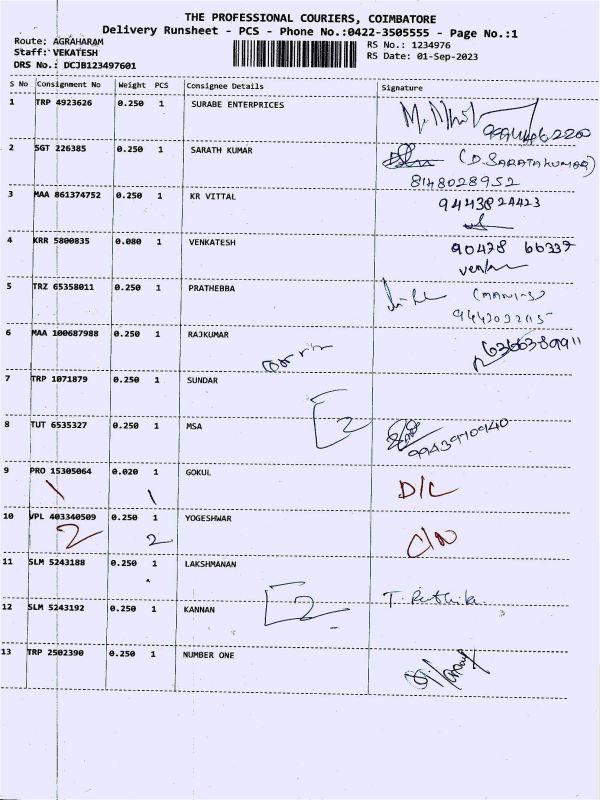 THE PROFESSIONAL COURIERS, COIMBATORE
Delivery Runsheet - PCS - Phone No.:0422-3505555 - Page No.:1
Route: AGRAHARAM
RS No.: 1234976
Staff: VEKATESH
RS Date: 01-Sep-2023
DRS No.: DCJB123497601
S No Consignment No Weight PCS Consignee Details Signature
1 TRP 4923626 0.250 1 SURABE ENTERPRICES
2 SGT 226385 0.250 1 SARATH KUMAR (D.SARATAKUMAR)
8148028952
3 MAA 861374752 0.250 1 KR VITTAL 9443824423
4 KRR 5800835 0.080 1 VENKATESH
5 TRZ 65358011 0.250 1 PRATHEBBA
6 MAA 100687988 0.250 1 RAJKUMAR 6366389911
7 TRP 1071879 0.250 1 SUNDAR
2
8 TUT 6535327 0.250 1 MSA
9943910940
9 PRO 15305064 0.020 1 GOKUL
1 1 D/L
10 VPL 403340509 0.250 1 YOGESHWAR
2 2
11 SLM 5243188 0.250 1 LAKSHMANAN
12 SLM 5243192 0.250 1 KANNAN 2
13 TRP 2502390 0.250 1 NUMBER ONE